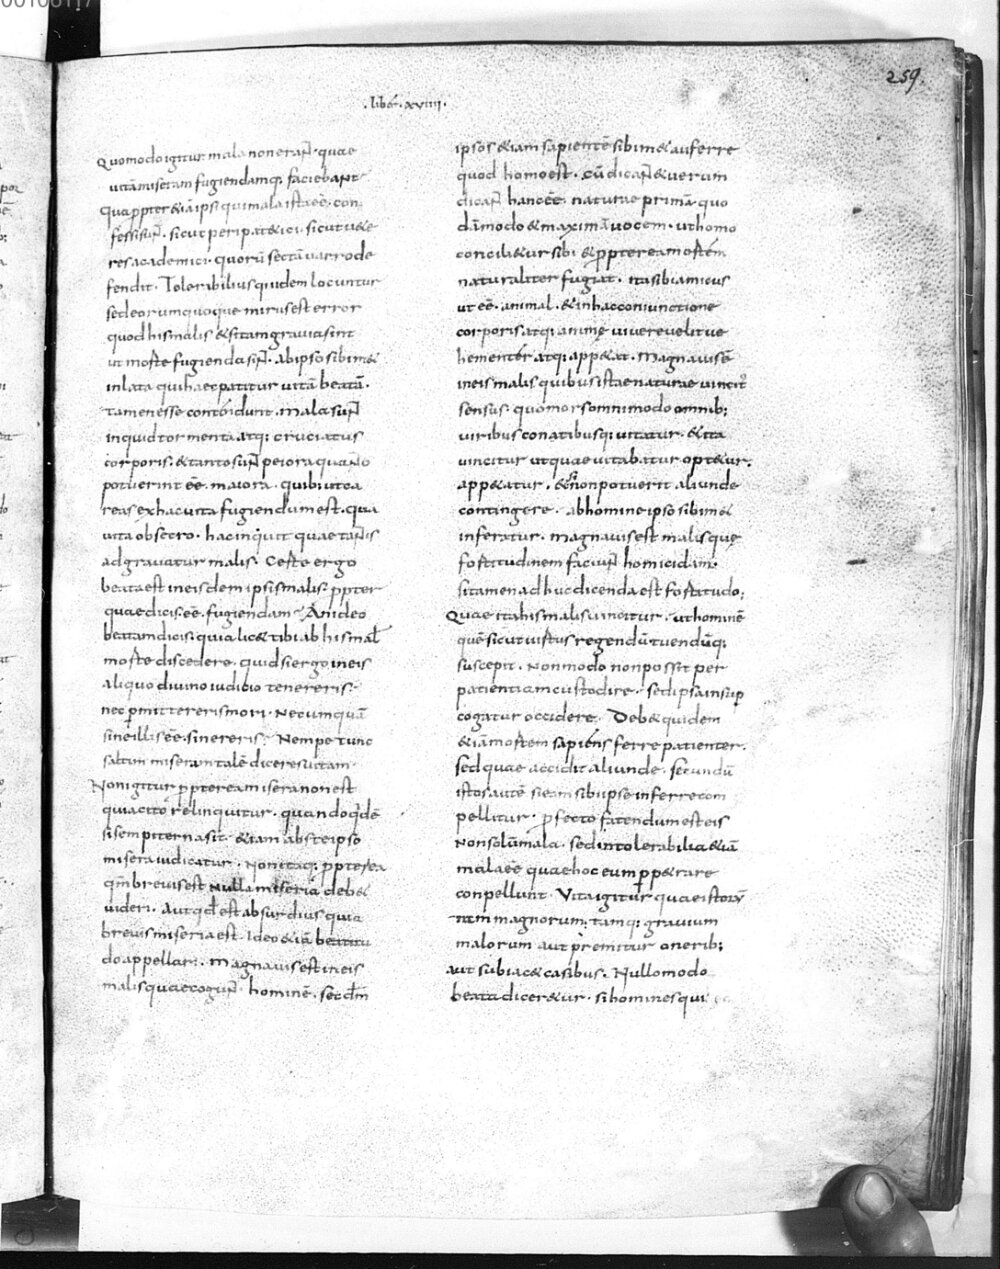 259.
. liber . xviiii .
Quomodo igitur mala non erant . quae
uitam miseram fugiendamq; faciebant
Quappter & iā ipsi qui mala ista eē . con
fessi sunt . sicut peripatetici . sicut uete
res academici . quorū sectā uarro de
fendit . Tolerabilius quidem locuntur
sed eorum quoque mirus est error
quod his malis & si tam grauia sint
ut morte fugienda sint . ab ipso sibimet
inlata qui haec patitur uitā beatā .
tamen esse contendunt . mala sunt
inquid tormenta atq; cruciatus
corporis . & tanto sunt peiora quanto
potuerint eē . maiora . quib; ut ea
reas ex hac uita fugiendum est . qua
uita obsecro . hac inquit quae tantis
adgrauatur malis . Certe ergo
beata est in eisdem ipsis malis . ppter
quae dicis eē . fugiendam . An ideo
beatam dicis . quia lic& tibi ab his mal
morte discedere . quid si ergo in eis
aliquo diuino iudicio tenereris .
nec pmittereris mori . nec umquā
sine illis eē . sinereris . Nempe tunc
saltim miseram talē diceres uitam .
Non igitur ppterea misera non est
quia cito relinquitur . quando qdē
si sempiterna sit . etiam abs te ipso
misera iudicatur . Non itaq; ppterea
qm breuis est nulla miseria deb&
uideri . Aut qd est absurdius quia
breuis miseria est . Ideo & iā beatitu
do appellari . Magna uis est in eis
malis quae cogunt . hominē . secdm
ipsos & iam sapientē sibimet auferre
quod homo est . cū dicant & uerum
dicant hanc eē . naturae primā quo
dāmodo & maximā uocem . ut homo
concili&ur sibi & ppterea mortem
naturaliter fugiat . ita sibi amicus
ut eē . animal . & in hac coniunctione
corporis atq; animę uiuere uelit ue
hementer atq; app&at . Magna uis ē
in eis malis quibus iste naturae uincit
sensus . quo mors omnimodo omnib;
uiribus conatibusq; uitatur . & ita
uincitur ut quae uitabatur opt&ur;
app&atur . & si non potuerit aliunde
contingere . ab homine ipso sibimet
inferatur . magna uis est malis quę
fortitudinem faciunt homicidam .
si tamen adhuc dicenda est fortitudo;
Quae ita his malis uincitur . ut hominē
quē sicut uirtus regendū tuendūq;
suscepit . Non modo non possit per
patientiam custodire . sed ipsa insup
cogatur occidere . Deb& quidem
& iā mortem sapiens ferre patienter .
sed quae accidit aliunde . secundū
istos autē si eam sibi ipse inferre com
pellitur . pfecto fatendum est eis
non solū mala . sed intolerabilia & iā
mala eē quae hoc eum pp&rare
conpellunt . Vita igitur quae istorū
tam magnorum . tamq; grauium
malorum aut premitur onerib;
aut subiac& casibus . Nullo modo
beata dicer&ur . si homines qui